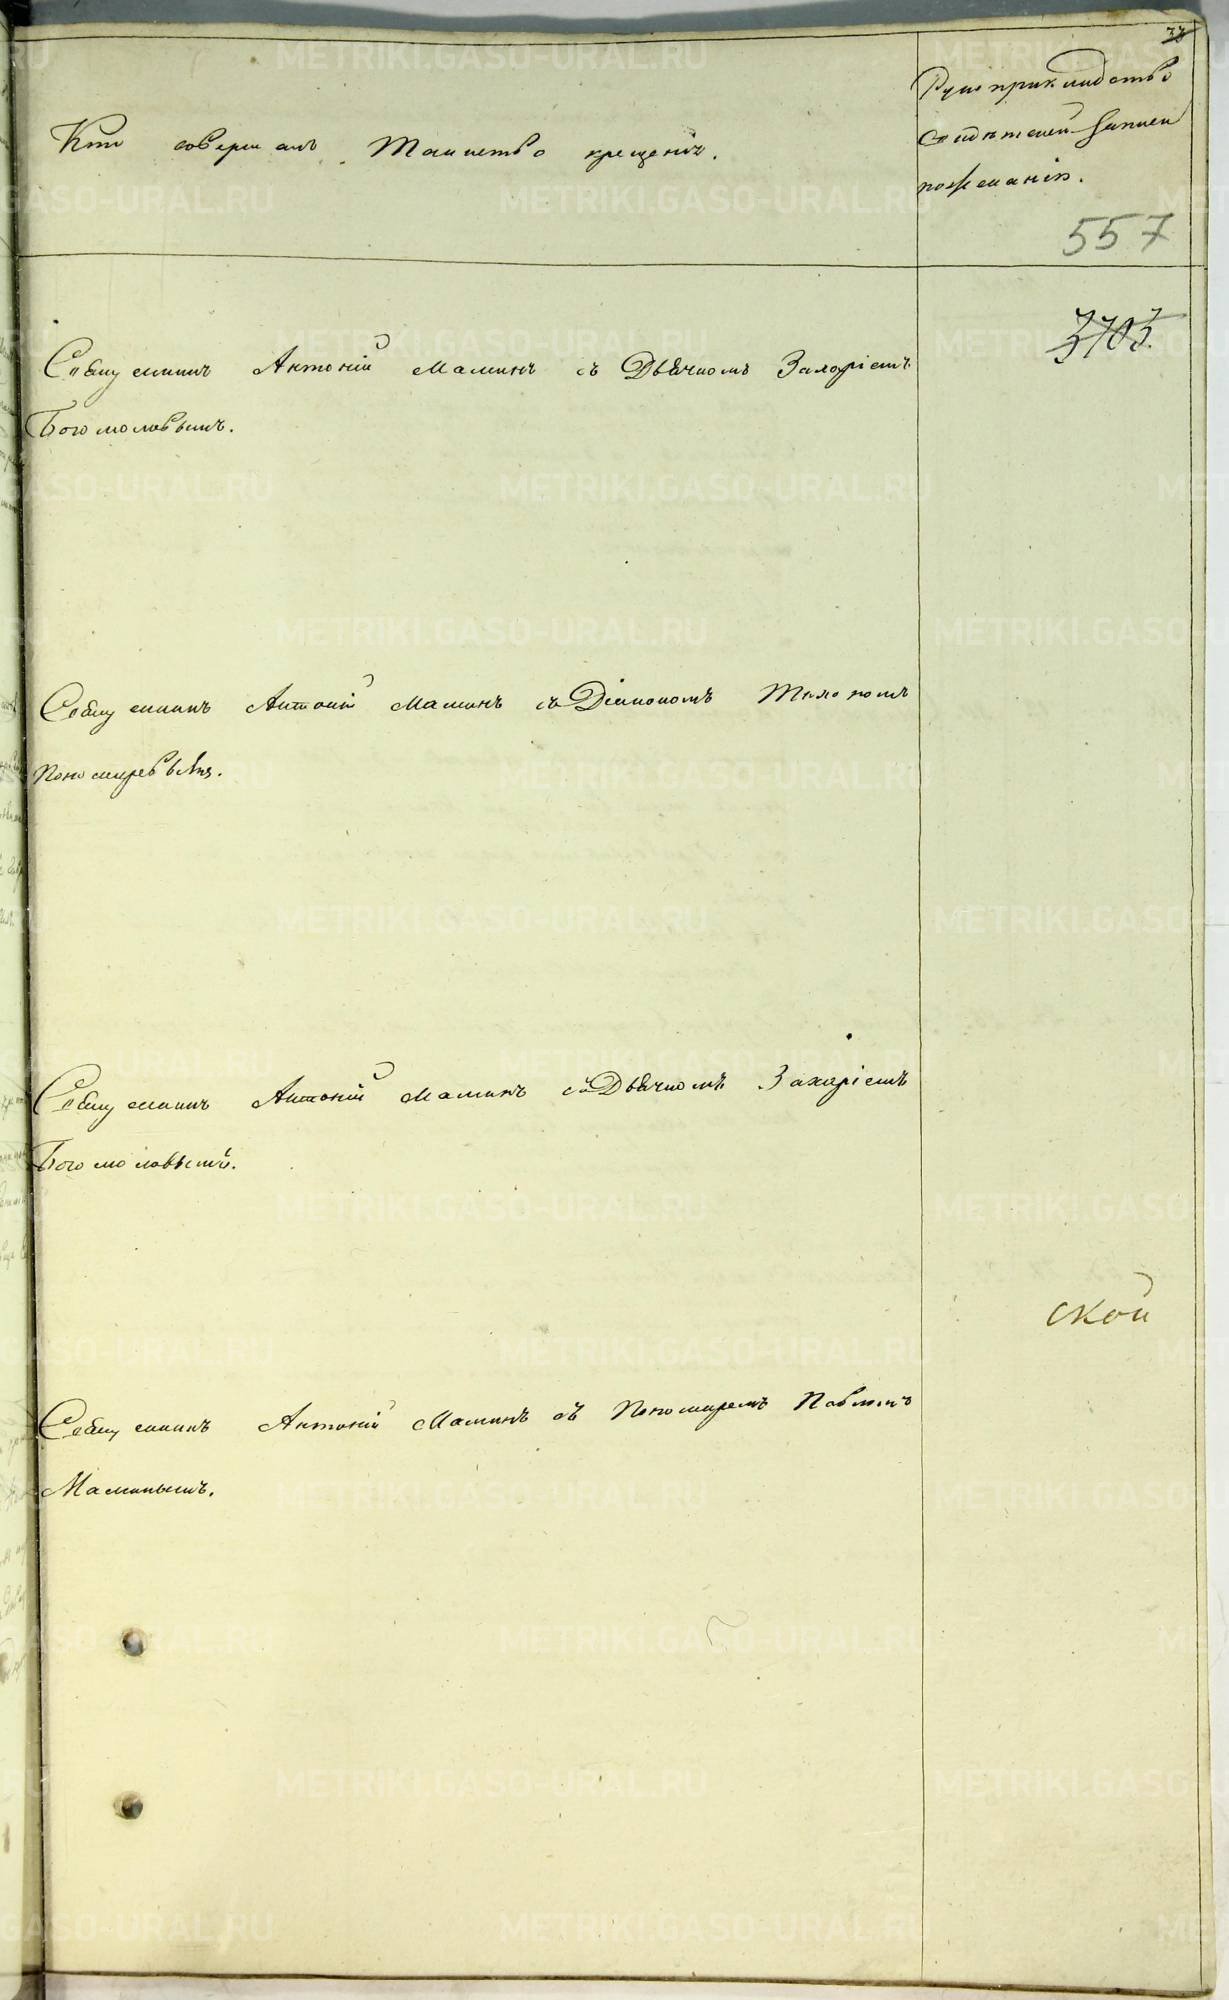 Кто совершалъ Таинство крещенія.
Рукоприкладство
свидѣтелей записи
по желанію.
557
3703
Священникъ Антоній Маминъ съ Дьячкомъ Захаріемъ
Богомоловымъ.
Священникъ Антоній Маминъ съ Діакономъ
Пономаревымъ.
Священникъ Антоній Маминъ съ Дьячкомъ Захаріемъ
Богомоловымъ.
ской
Священникъ Антоній Маминъ съ Пономаремъ Павломъ
Маминымъ.
METRIKI.GASO-URAL.RU